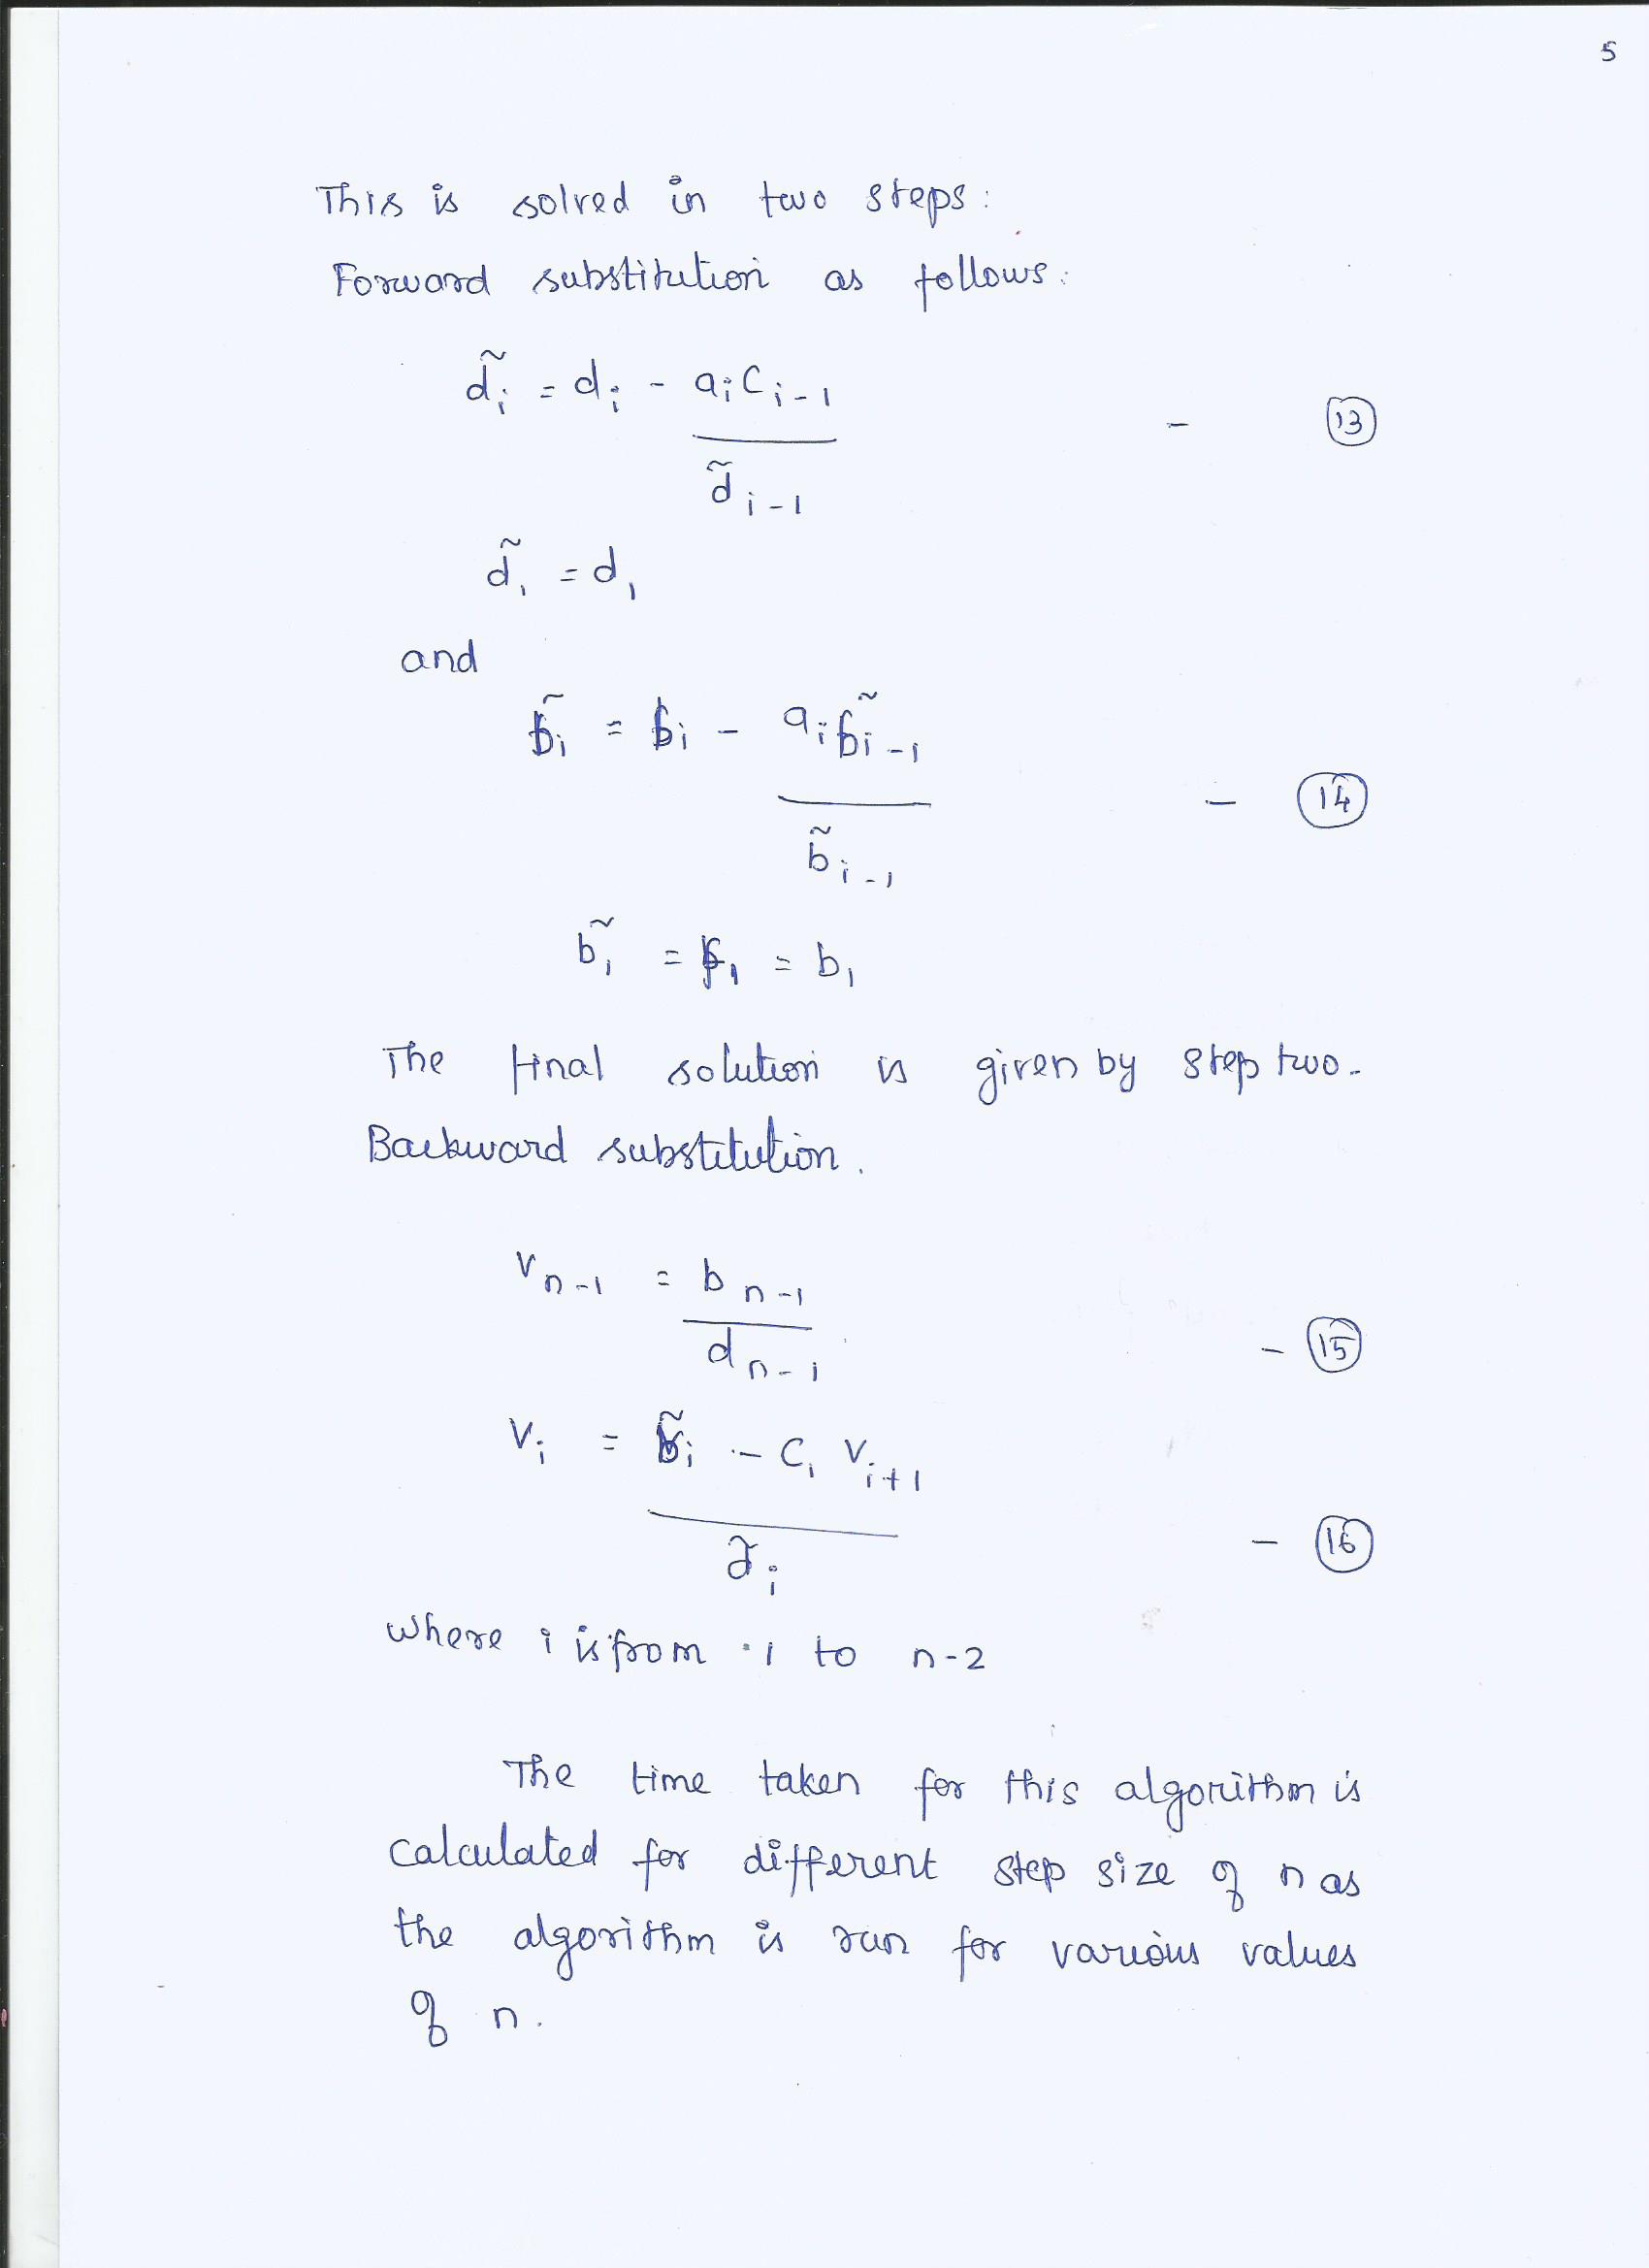 5
This is solved in two steps:
Forward substitution as follows:
d̃ᵢ = dᵢ - aᵢcᵢ₋₁
d̃ᵢ₋₁
- 13
d̃₁ = d₁
and
b̃ᵢ = bᵢ - aᵢb̃ᵢ₋₁
b̃ᵢ₋₁
- 14
b̃₁ = = b₁
The final solution is given by step two.
Backward substitution.
vₙ₋₁ = bₙ₋₁
dₙ₋₁
- 15
vᵢ = b̃ᵢ - cᵢ vᵢ₊₁
d̃ᵢ
- 16
where i is from 1 to n-2
The time taken for this algorithm is
calculated for different step size of n as
the algorithm is run for various values
of n.